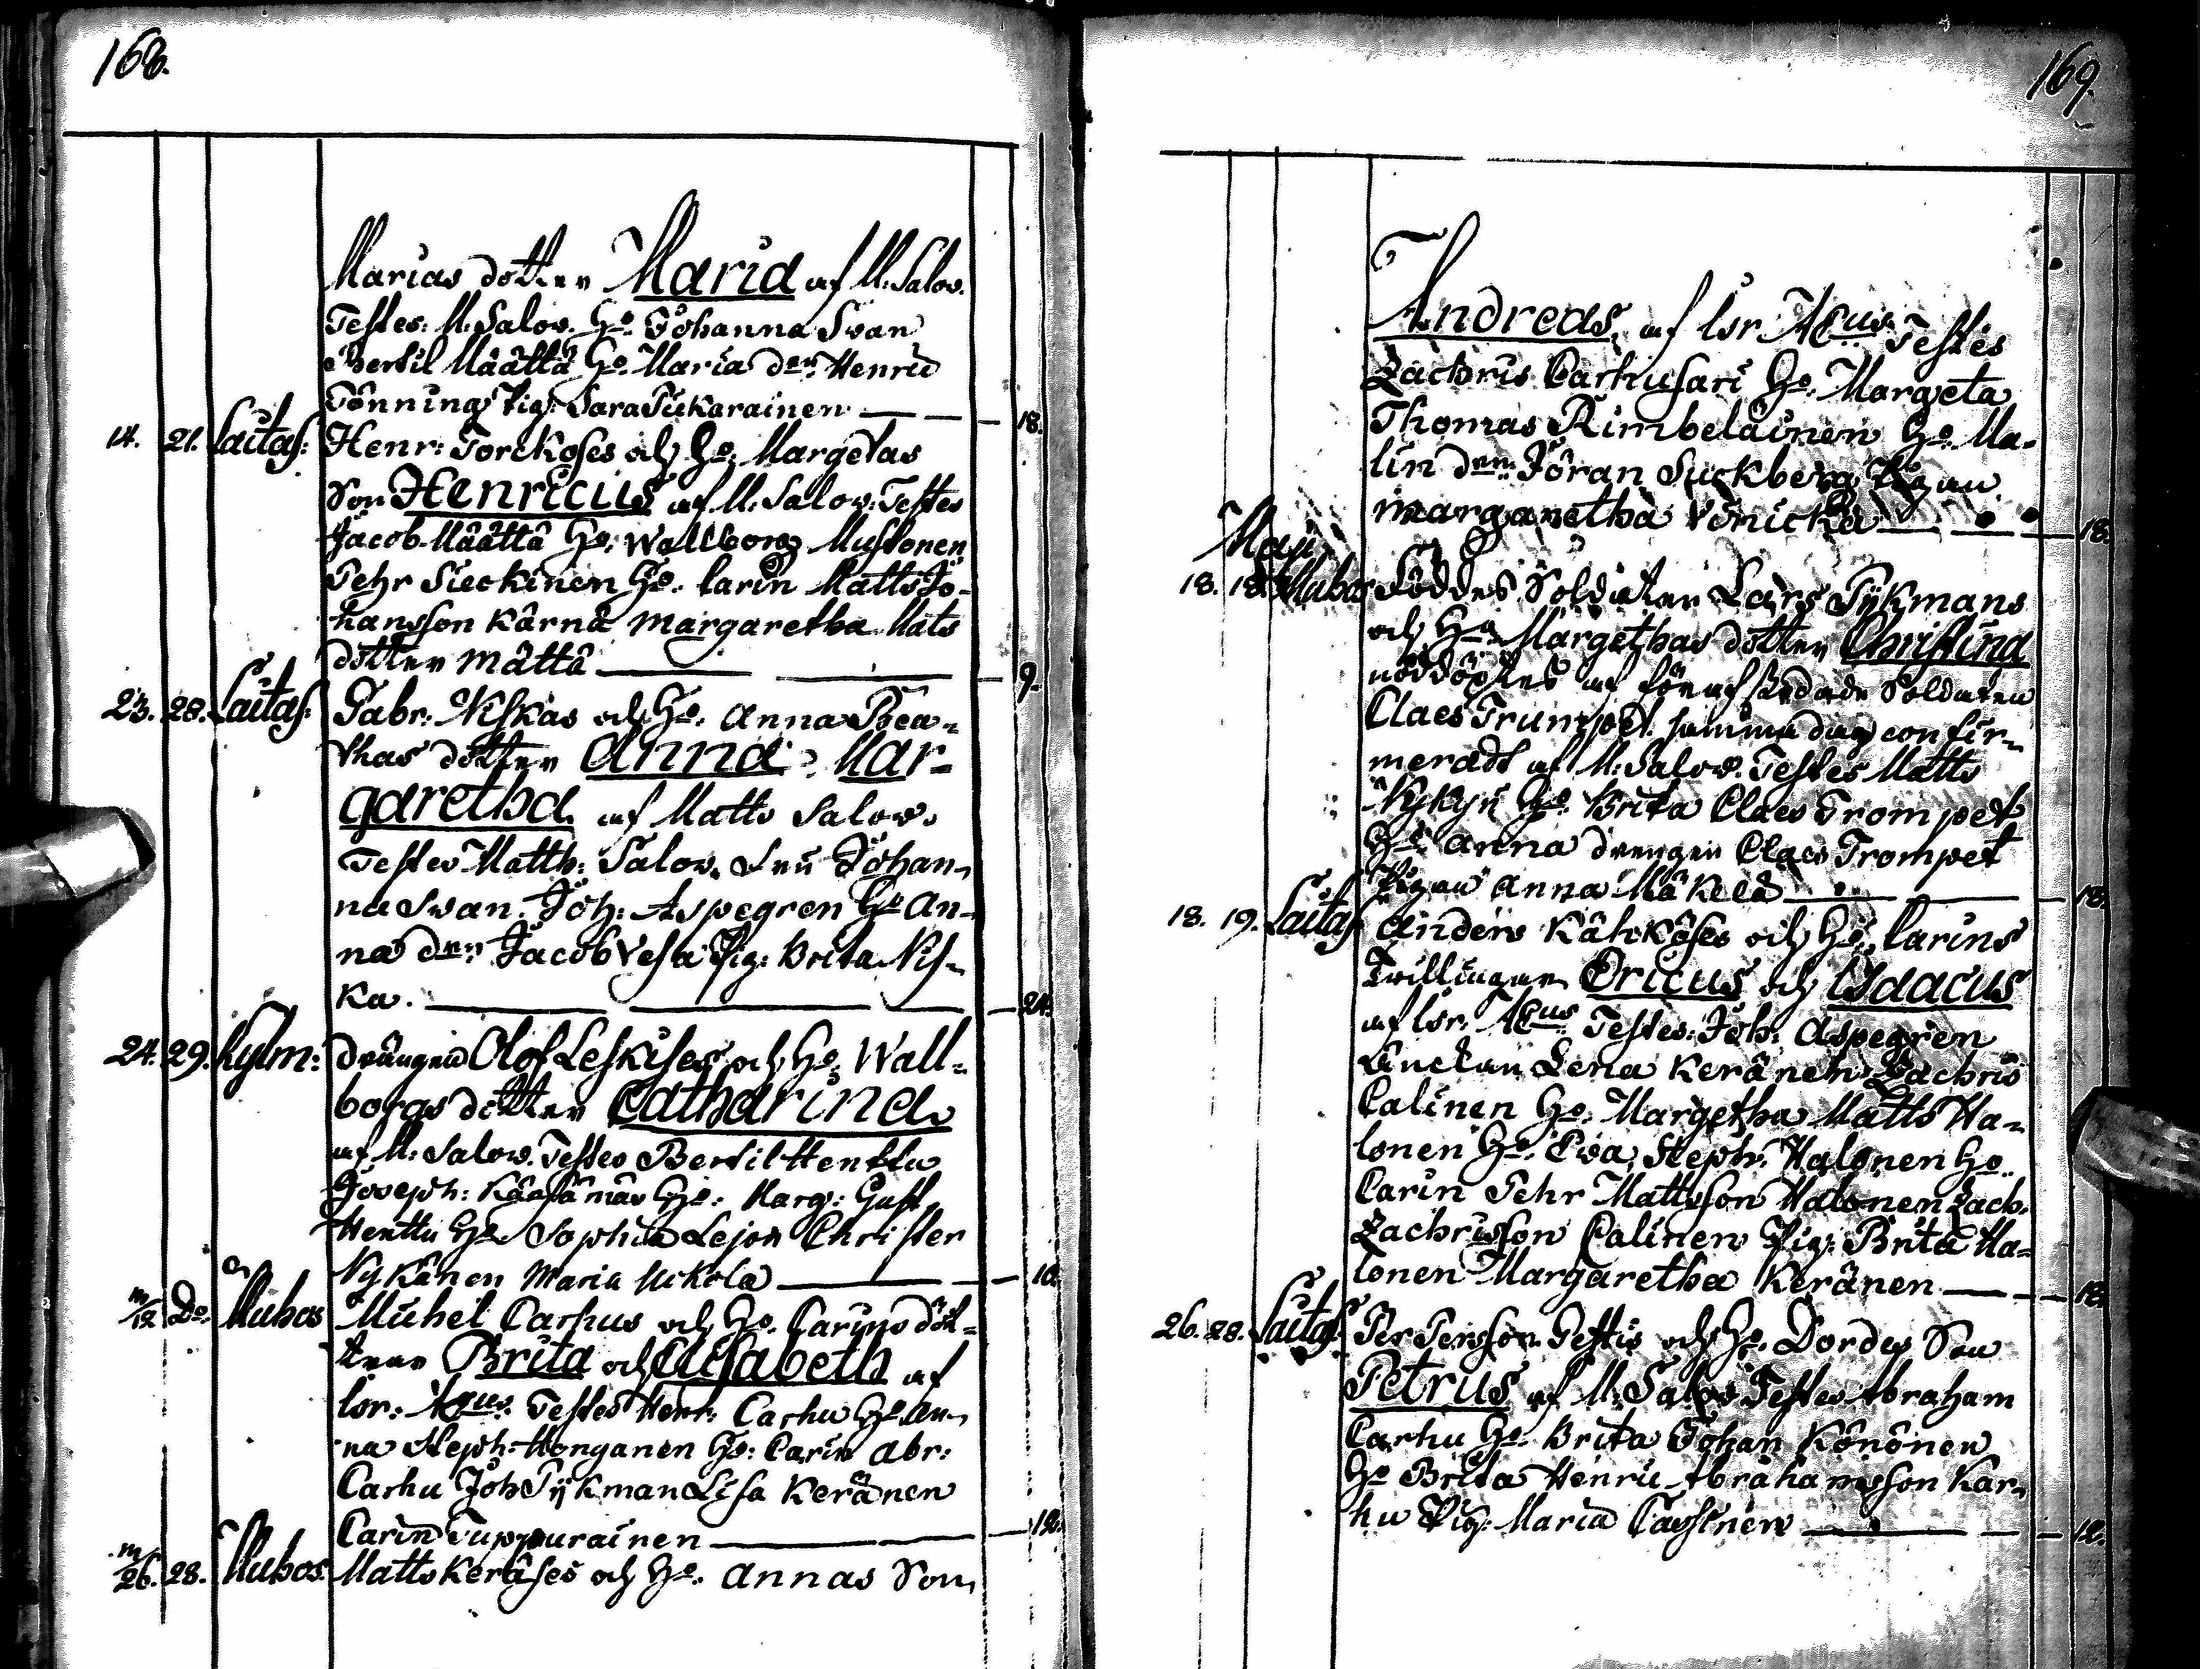 168.
Marias dotter Maria af M: Salov.
Testes: M: Salov. Ho. Johanna Svan
Bertil Määttä Ho. Maria dr. Henric
Tönning Pig: Sara Pikarainen — 18.
14. 21. Saitas: Henr: Torckoses och Ho. Margetas
Son Henricus af M: Salov: Testes
Jacob Määttä Ho: Wallborg Mustonen
Pehr Sieckinen Ho. Carin Matts Jo-
hansson Kärnä Margaretha Mats
dotter Mättä — 9.
23. 28. Saitas: Gabr: Niskas och Ho. Anna Bea-
thas dotter Anna Mar-
garetha af Matts Salov.
Testes Matth: Salov. Fru Johan-
na Svan. Joh: Aspegren Ho An-
na dr. Jacob Vesa Pig: Brita Nis-
ka. — 24.
24. 29. Kylm: drängen Olof Leskises och Ho. Wall-
borgs dotter Catharina
af M: Salov. Testes Bertil Henttu
Joseph: Ho: Marg: Gust.
Henttu Ho. Sophia Lejon Christer
Nykänen Maria Uckola — 10.
m/12 Do. Muhos Michel Carhus och Ho. Carins döt-
trar Brita och Elisabeth af
Isr: Aeus. Testes Henr: Carhu Ho. An-
na Steph: Honganen Ho: Carin Abr:
Carhu Joh Pykman Lisa Keränen
Carin Tuppurainen — 18.
m/26. 28. Muhos. Matts Keräses och Ho. Annas Son
169.
Andreas, af Isr. Aeus. Testes
Zachris Carhusari Ho. Margeta
Thomas Kimbeläinen Ho. Ma-
lin dr. Jöran Suckberg Pigan
Margaretha — 18.
Maji
18. 18. Muhos Föddes Soldaten Lars Pykmans
och Ho. Margethas dotter Christina
nöddöptes af förafskedade Soldaten
Claes Trumpet. samma dag confir-
meradt af M: Salov. Testes Matts
Nykyri Ho. Brita Claes Trompet
Ho. Anna drengen Claes Trompet
Pigan Anna Mäkelä — 18.
18. 19. Saitas Anders Kähköses och Ho. Carins
Tvillingar Ericus och Isaacus
af Isr. Aeus. Testes: Joh: Aspegren
Enckan Lena Keränen Zachris
Calinen Ho. Margetha Matts Ha-
lonen Ho. Eva, Steph: Halonen Ho.
Carin Pehr Mattsson Halonen Zach.
Zachrisson Calinen Pig: Brita Ha-
lonen Margaretha Keränen — 12.
26. 28. Saitas Per Persson Testis och Ho. Dordes Son
Petrus af M: Salov Testes Abraham
Carhu Ho. Brita Johan Könönen
Ho Brita Henric Abrahamsson Kar-
hu Pig: Maria — 12.